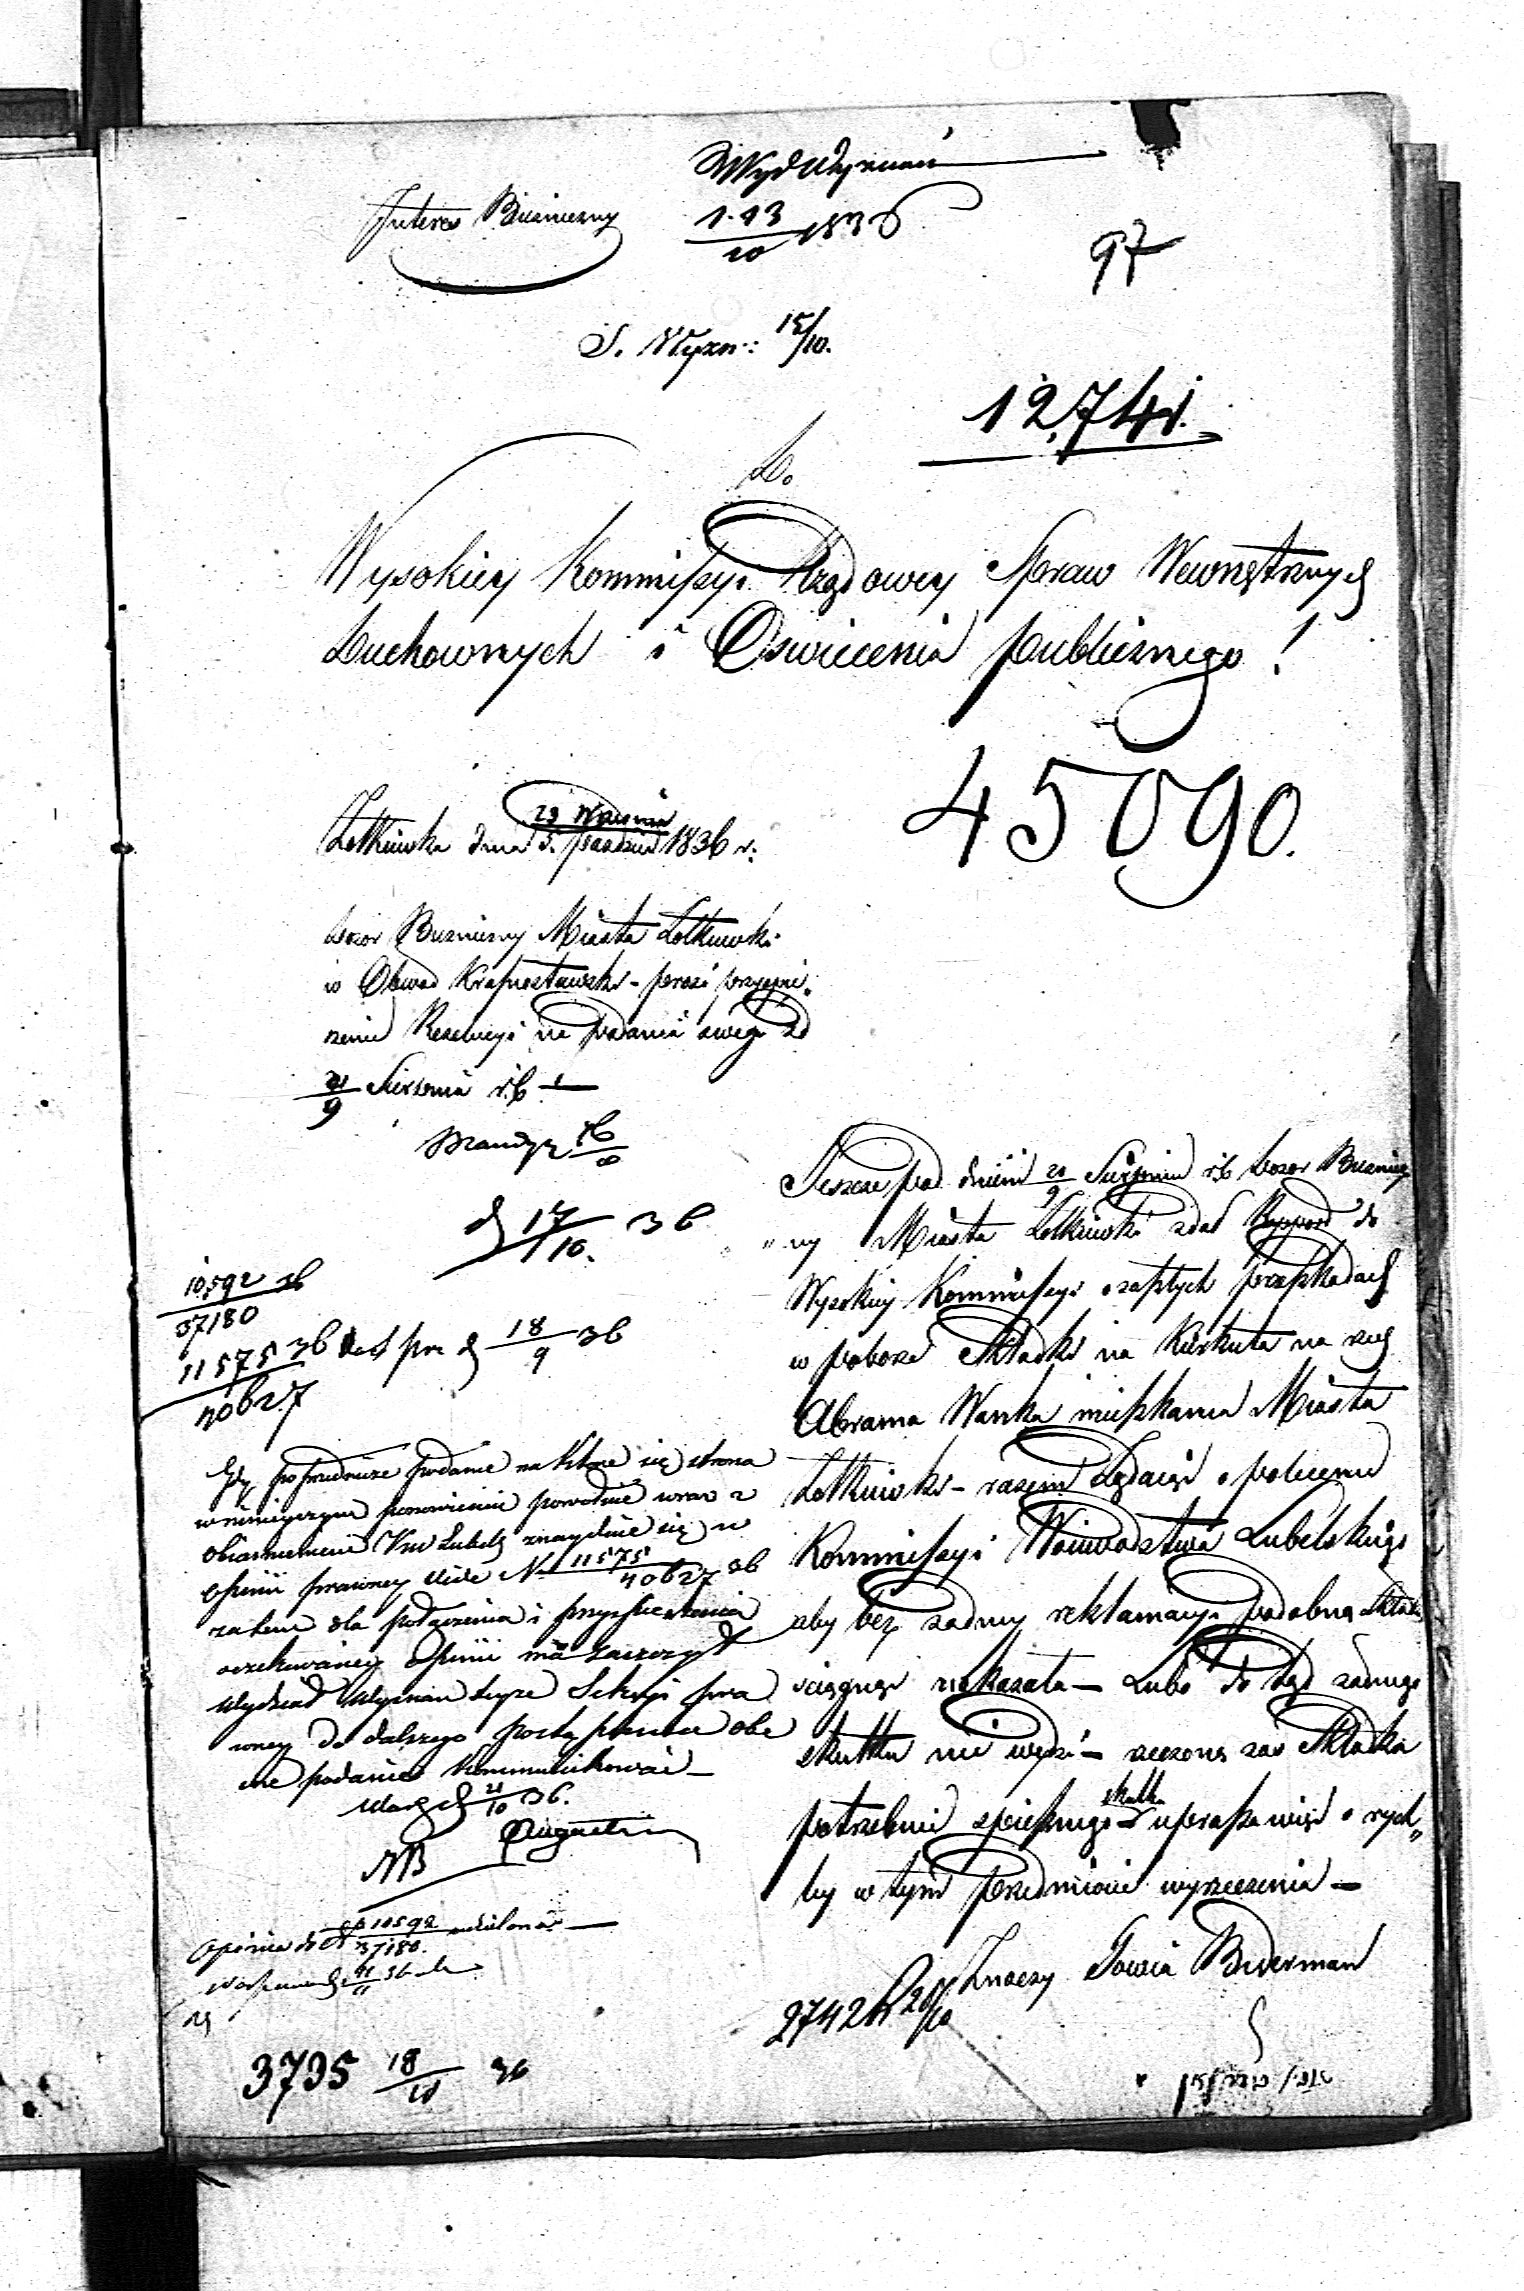 Wyd Wyznań
Interes Bużniczny
1.13/10 1836
97
S. Wyzn: 15/10.
12,741.
Do
Wysokiey Kommissyi Rządowey Spraw Wewnętrznych
Duchownych i Oswiecenia publicznego!
45090.
29 Wrzesnia
Żołkiewka dnia paździer 1836 r.
Dozor Bużniczny Miasta Żołkiewki
w Obwod Krasnostawski - prosi przyspie„
szenie Rezolucyi na podanie swego
21/9 Sierpnia r.b. —
d 17/10. 36
10,592 36
37180
11575 36 d 18/9 36
40627
Gdy poprzednicze podanie na które się strona
w niniejszym ponowieniu powołuie wraz z
obiaśnieniem Kw Lubels znayduie się w
opinii prawney vide N 11575/40627 36
zatem dla połączenia i przyspieszenia
oczekiwaney opinii ma zaszczyt
Wydział Wyznań Sekcyi pra
wney do dalszego postępowania obe
cne podanie kommunikować —
Warsz d 21/10 36.
Augustin
NB
Opinia do N 10592/37180. udzielona —
3735 18/10 36
Jeszcze pod dniem 21/9 Sierpnia r.b. Dozor Bużnicz
„ny Miasta Żołkiewki zdał Rapport do
Wysokiey Kommissyi o zaszłych przeszkodach
w poborze Składki na Kirkuta na rzecz
Abrama Wanka mieszkańca Miasta
Żołkiewki - razem żądaiąc o polecenie
Kommissyi Woiewodztwa Lubelskiego
aby bez żadney reklamacyi podobną Składkę
ściągnąć nakazała — Lubo do tąd żadnego
skutku nie widzi — rzeczona zaś Składka
potrzebuie spiesznego skutku uprasza więc o rych„
ły w tym przedmiocie wyrzeczenie —
Znaczy Biderman
27424 20/10